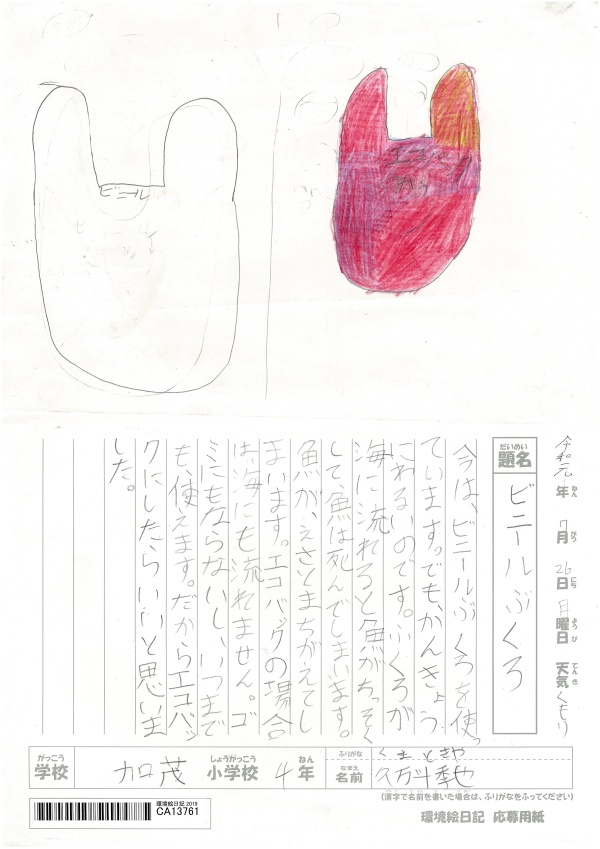 ビニール
エコバック
令和元年 7月 26日 月曜日 天気 くもり
ねん がつ にち ようび てんき
だいめい
題名 ビニールぶくろ
今は、ビニールぶくろを使っ
ています。でも、かんきょう
にわるいのです。ふくろが
海に流れると魚がちっそく
して、魚は死んでしまいます。
魚が、えさとまちがえてし
まいます。エコバックの場合
は、海にも流れません。ゴ
ミにもならないし、いつまで
も、使えます。だからエコバッ
クにしたらいいと思いま
した。
がっこう しょうがっこう ねん
学校 加茂 小学校 4年
ふりがな くま ときや
なまえ
名前 久万斗季也
(漢字で名前を書いた場合は、ふりがなをふってください)
環境絵日記2019
CA13761
環境絵日記 応募用紙